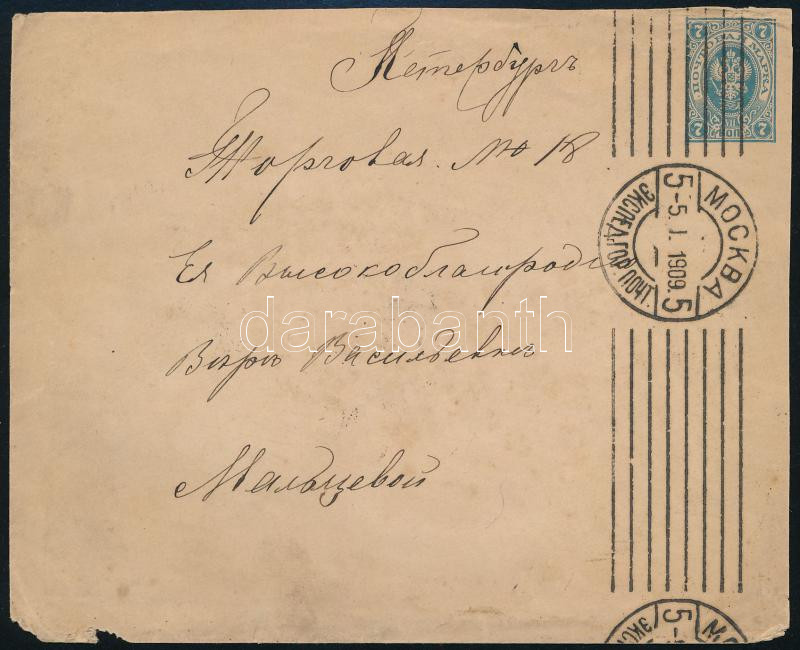 Петербургъ
Торговая. № 18
Ея Высокоблагородію
Вѣрѣ Васильевнѣ
Мальцевой
7 7
ПОЧТОВАЯ МАРКА
VII
7 КОП 7
МОСКВА
5 -5. I. 1909. 5
ЭКСПЕД. ГОР. ПОЧТ.
darabanth
МО
5 -5
ЭКСПЕ